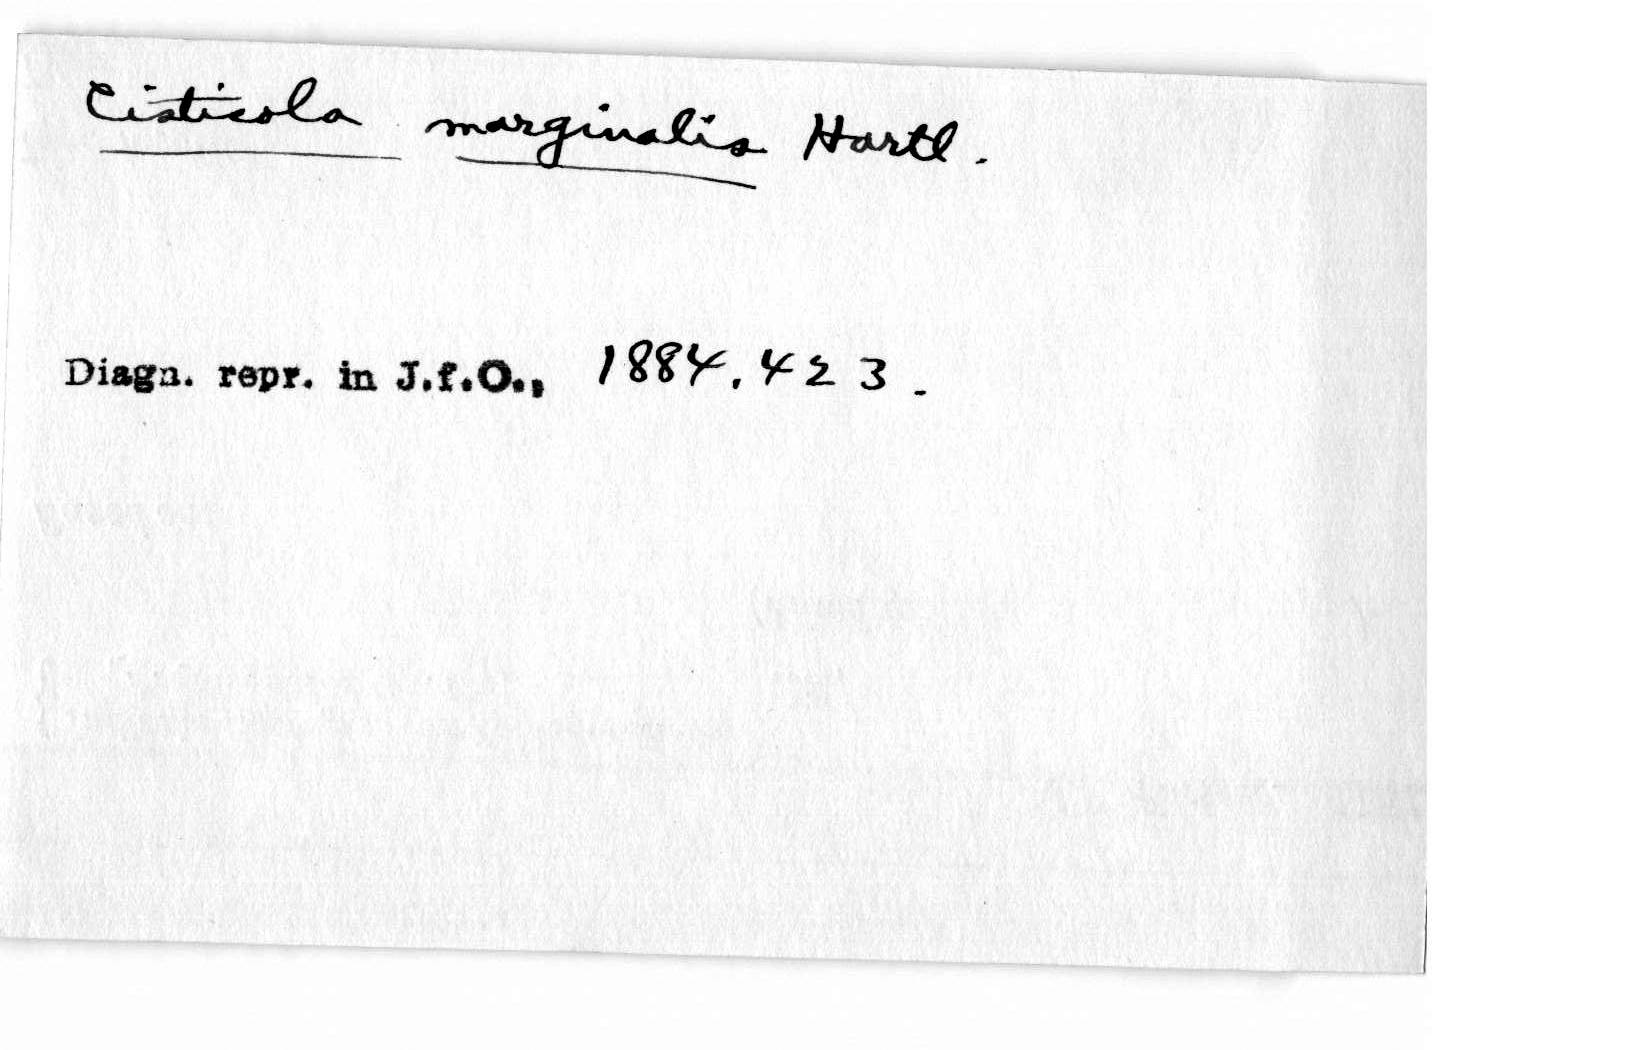 Cisticola marginalis Hartl.
Diagn. repr. in J.f.O., 1884, 423.